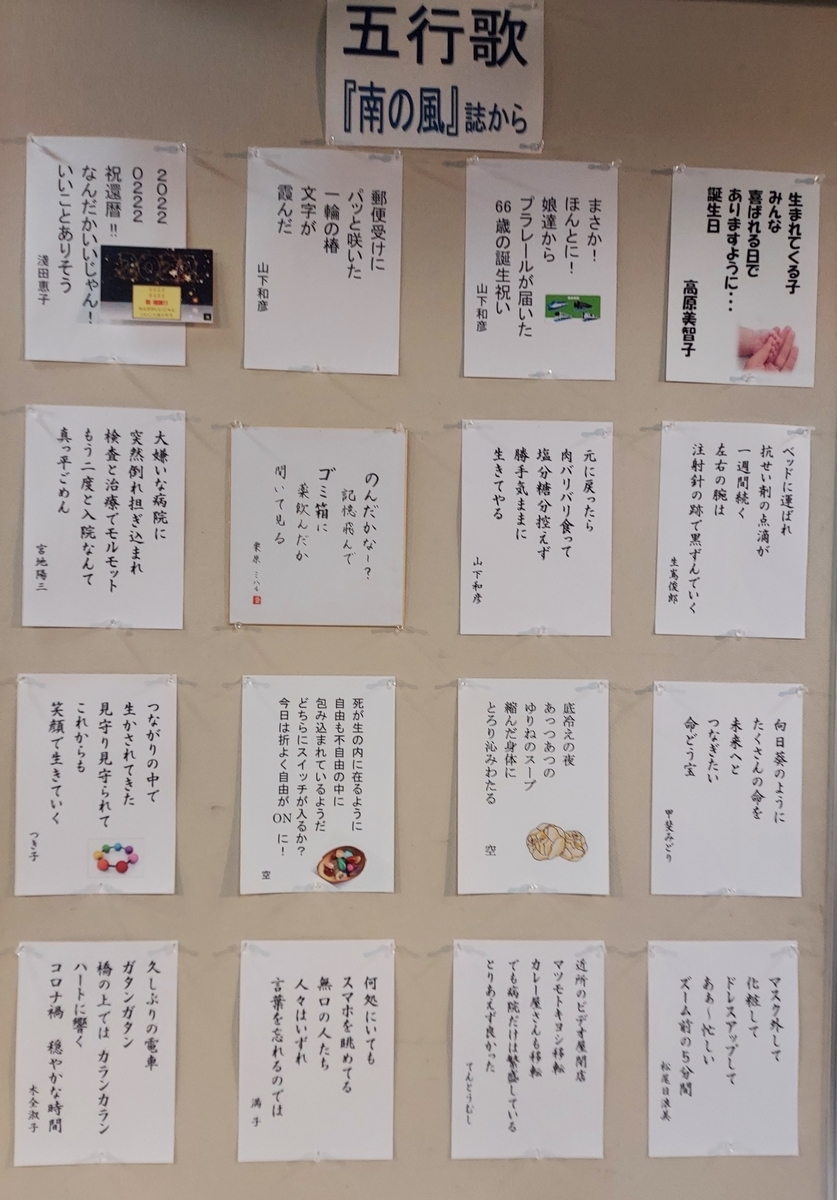 五行歌
『南の風』誌から
生まれてくる子
みんな
喜ばれる日で
ありますように・・・
誕生日
高原美智子
まさか！
ほんとに！
娘達から
プラレールが届いた
66歳の誕生祝い
山下和彦
郵便受けに
パッと咲いた
一輪の椿
文字が
霞んだ
山下和彦
2022
0222
祝還暦！！
なんだかいいじゃん！
いいことありそう
淺田惠子
ベッドに運ばれ
抗せい剤の点滴が
一週間続く
左右の腕は
注射針の跡で黒ずんでいく
生嶌俊郎
元に戻ったら
肉バリバリ食って
塩分糖分控えず
勝手気ままに
生きてやる
山下和彦
のんだかなー？
記憶飛んで
ゴミ箱に
薬飲んだか
聞いて見る
栗原
大嫌いな病院に
突然倒れ担ぎ込まれ
検査と治療でモルモット
もう二度と入院なんて
真っ平ごめん
宮地陽三
向日葵のように
たくさんの命を
未来へと
つなぎたい
命どう宝
甲斐みどり
底冷えの夜
あっつあつの
ゆりねのスープ
縮んだ身体に
とろり沁みわたる
空
死が生の内に在るように
自由も不自由の中に
包み込まれているようだ
どちらにスイッチが入るか？
今日は折よく自由が ON に！
空
つながりの中で
生かされてきた
見守り見守られて
これからも
笑顔で生きていく
つき子
マスク外して
化粧して
ドレスアップして
あぁ～忙しい
ズーム前の5分間
松尾日浪美
近所のビデオ屋閉店
マツモトキヨシ移転
カレー屋さんも移転
でも病院だけは繁盛している
とりあえず良かった
てんとうむし
何処にいても
スマホを眺めてる
無口の人たち
人々はいずれ
言葉を忘れるのでは
満子
久しぶりの電車
ガタンガタン
橋の上では カランカラン
ハートに響く
コロナ禍 穏やかな時間
木全淑子